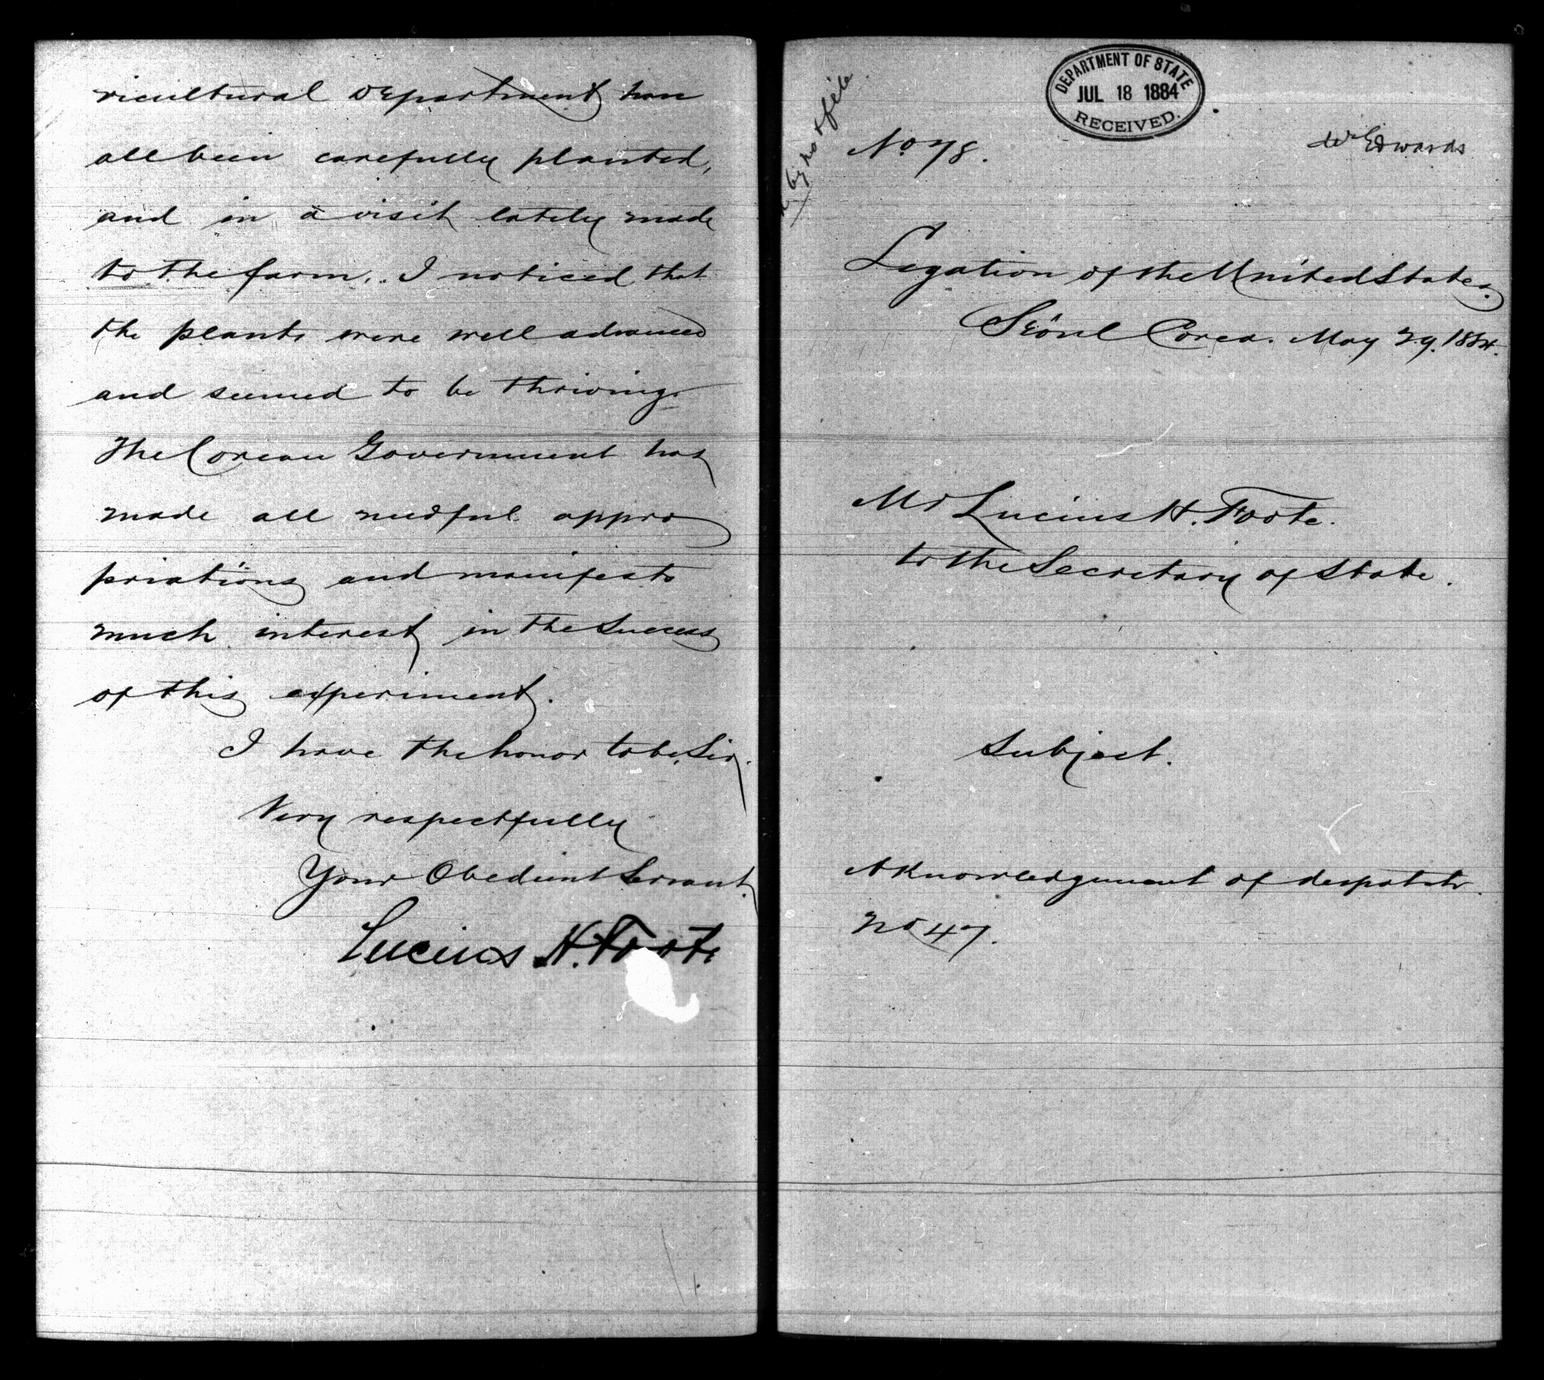 ricultural Department have
all been carefully planted,
and in a visit lately made
to the farm, I noticed that
the plants were well advanced
and seemed to be thriving.
The Corean Government has
made all needful appro
priations and manifests
much interest in the success
of this experiment.
I have the honor to be, Sir,
Very respectfully
Your Obedient Servant
Lucius H. Foote
DEPARTMENT OF STATE
JUL 18 1884
RECEIVED.
No 78.
Mr Edwards
Legation of the United States
Séoul Corea. May 29. 1884.
Mr Lucius H. Foote.
to the Secretary of State.
Subject.
Aknowledgement of despatch
No 47.